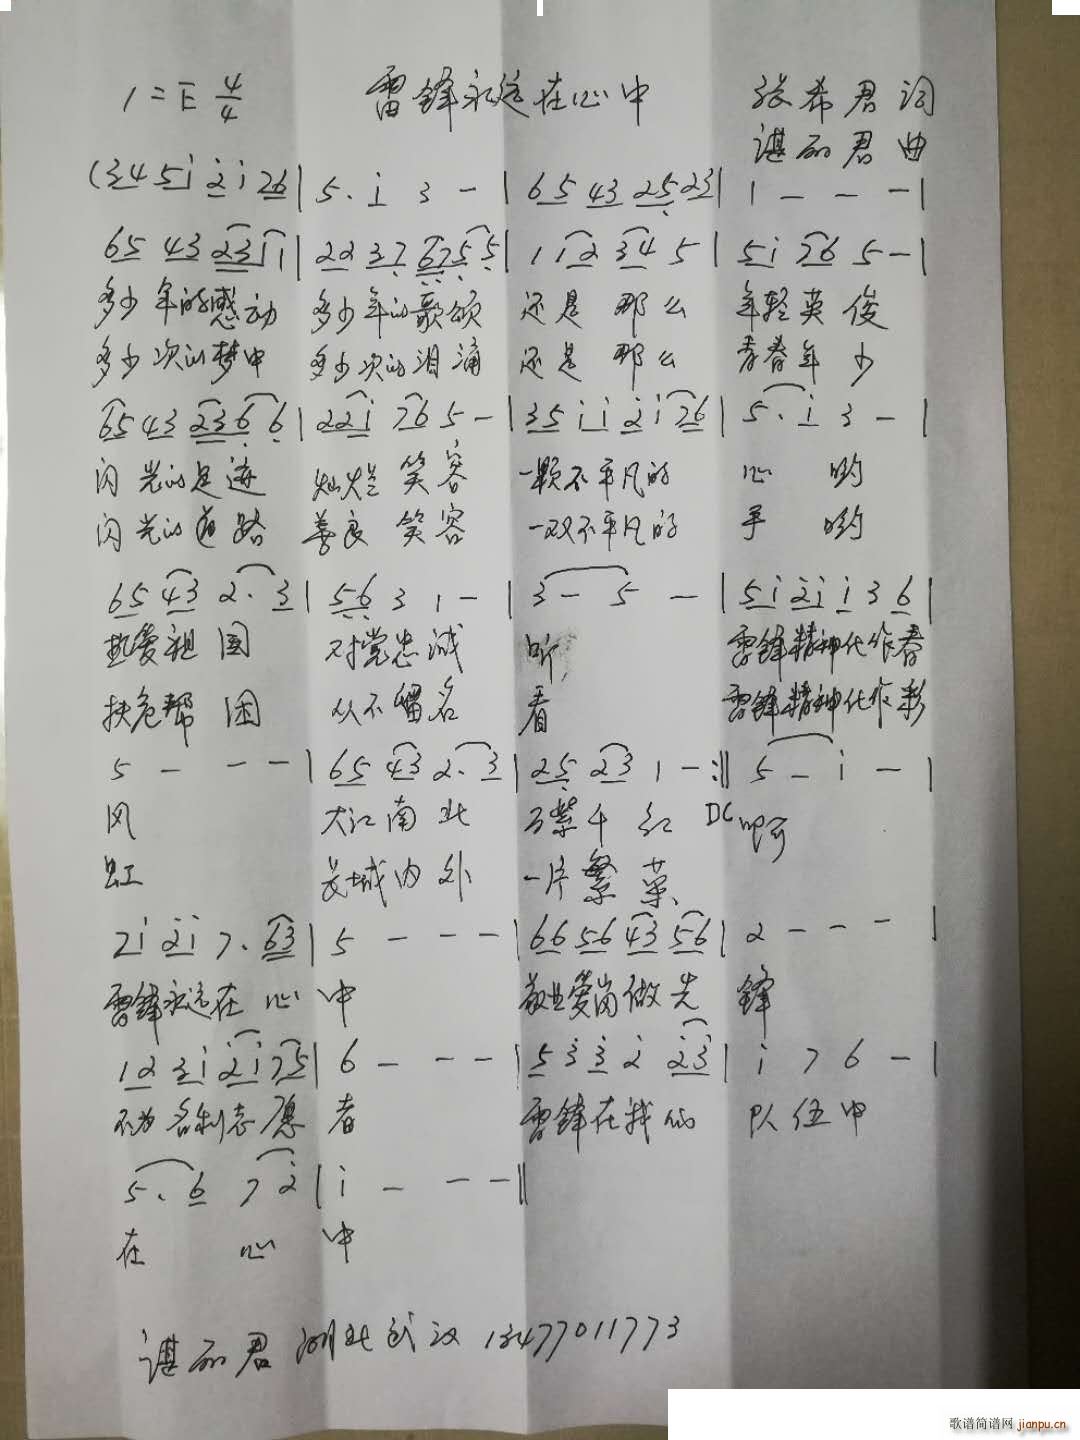 1=E 4/4 雷锋永远在心中 张希君词
谌丽君曲
(34 5i 2i 26 | 5. i 3 - | 65 43 25 23 | 1 - - - |
65 43 23 1 1 | 22 37 67 5 5 | 1 i 2 34 5 | 5i 76 5 - |
多少年的感动 多少年的歌颂 还是那么 年轻英俊
多少次的梦中 多少次的泪涌 还是那么 青春年少
65 43 23 6 6 | 22 i 76 5 - | 35 ii 2i 76 | 5. i 3 - |
闪光的足迹 灿烂笑容 一颗不平凡的 心哟
闪光的道路 善良笑容 一双不平凡的 手哟
65 43 2. 3 | 56 3 1 - | 3 - 5 - | 5i 2i i 3 6 |
热爱祖国 对党忠诚 听 雷锋精神化作春
扶危帮困 从不留名 看 雷锋精神化作彩
5 - - - | 65 43 2. 3 | 25 23 1 - :‖ 5 - i - |
风 大江南北 万紫千红 DC 啊
虹 长城内外 一片繁荣
7i 2i 7. 63 | 5 - - - | 66 56 43 56 | 2 - - - |
雷锋永远在心中 敬业爱岗做先锋
12 3i 2i 75 | 6 - - - | 5 3 3 2 23 | i 7 6 - |
不为名利志愿者 雷锋在我们 队伍中
5. 6 7 2 | i - - - ‖
在心中
谌丽君 湖北武汉 13477011773
歌谱简谱网 jianpu.cn